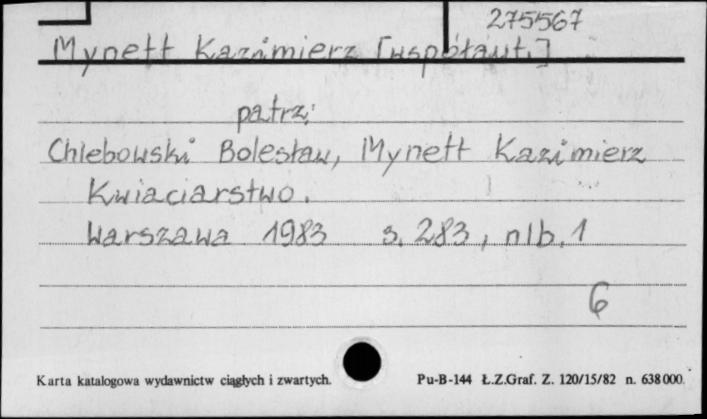 275567
Mynett Kazimierz [współaut.]
patrz:
Chlebowski Bolesław, Mynett Kazimierz
Kwiaciarstwo.
Warszawa 1983 s. 283, nlb. 1
6
Karta katalogowa wydawnictw ciągłych i zwartych. Pu-B-144 Ł.Z.Graf. Z. 120/15/82 n. 638 000.